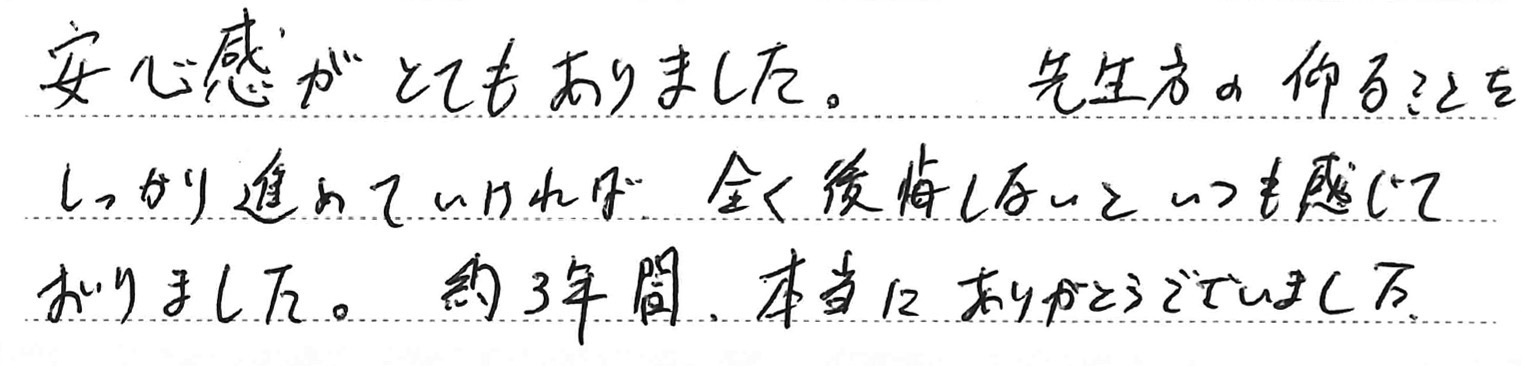 安心感がとてもありました。 先生方の仰ることを
しっかり進めていければ、全く後悔しないといつも感じて
おりました。 約3年間、本当にありがとうございました。